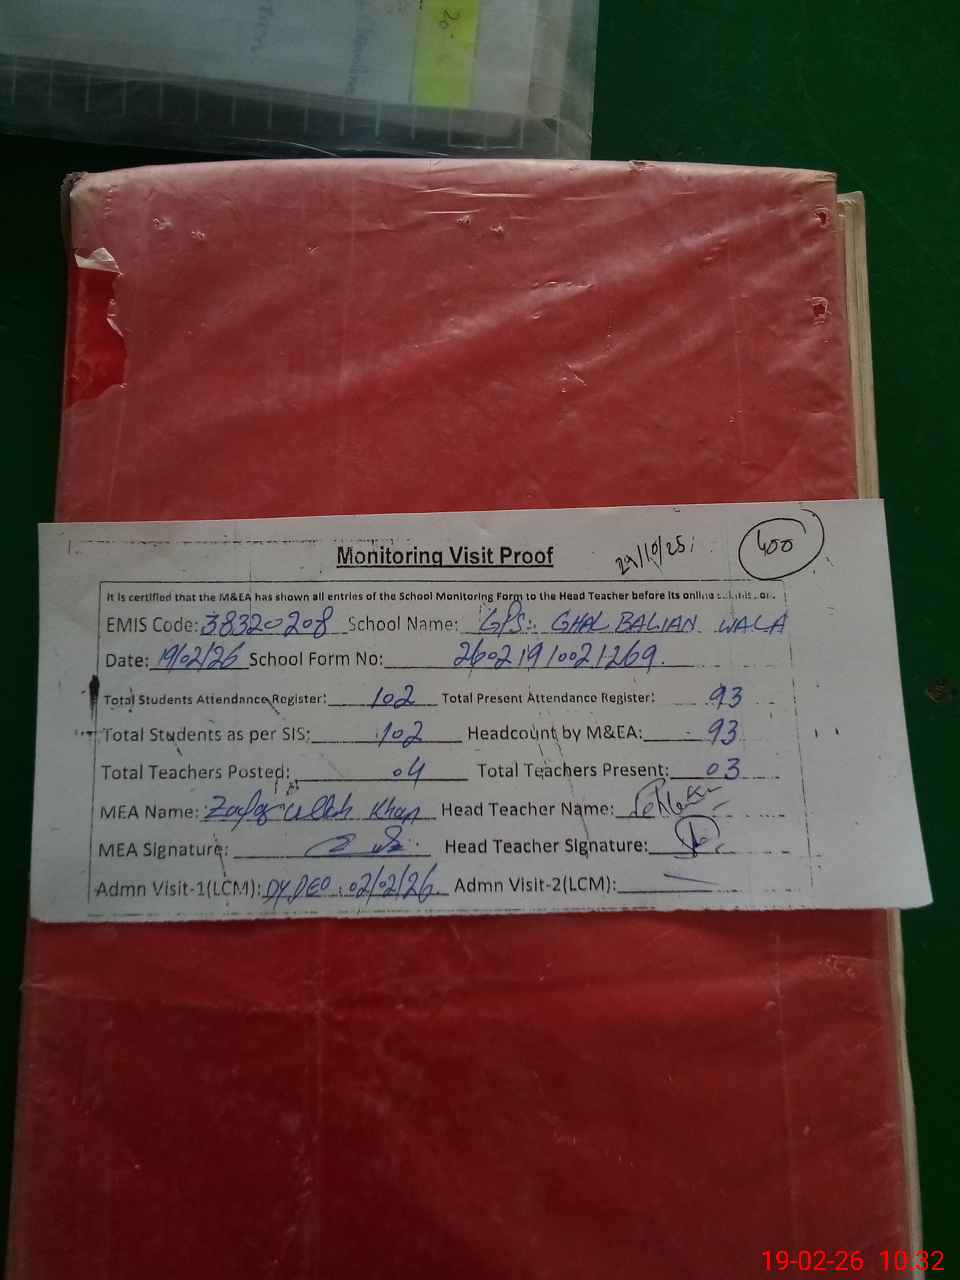 20
Monitoring Visit Proof 29/10/25 400
It is certified that the M&EA has shown all entries of the School Monitoring Form to the Head Teacher before its online
EMIS Code: 38320208 School Name: GPS: GHAL BALIAN WALA
Date: 19/02/26 School Form No: 26021910021269
Total Students Attendance Register: 102 Total Present Attendance Register: 93
Total Students as per SIS: 102 Headcount by M&EA: 93
Total Teachers Posted: 04 Total Teachers Present: 03
MEA Name: Zafar ullah Khan Head Teacher Name:
MEA Signature: Head Teacher Signature:
Admn Visit-1(LCM): DY DEO :02/02/26 Admn Visit-2(LCM): —
19-02-26 10:32